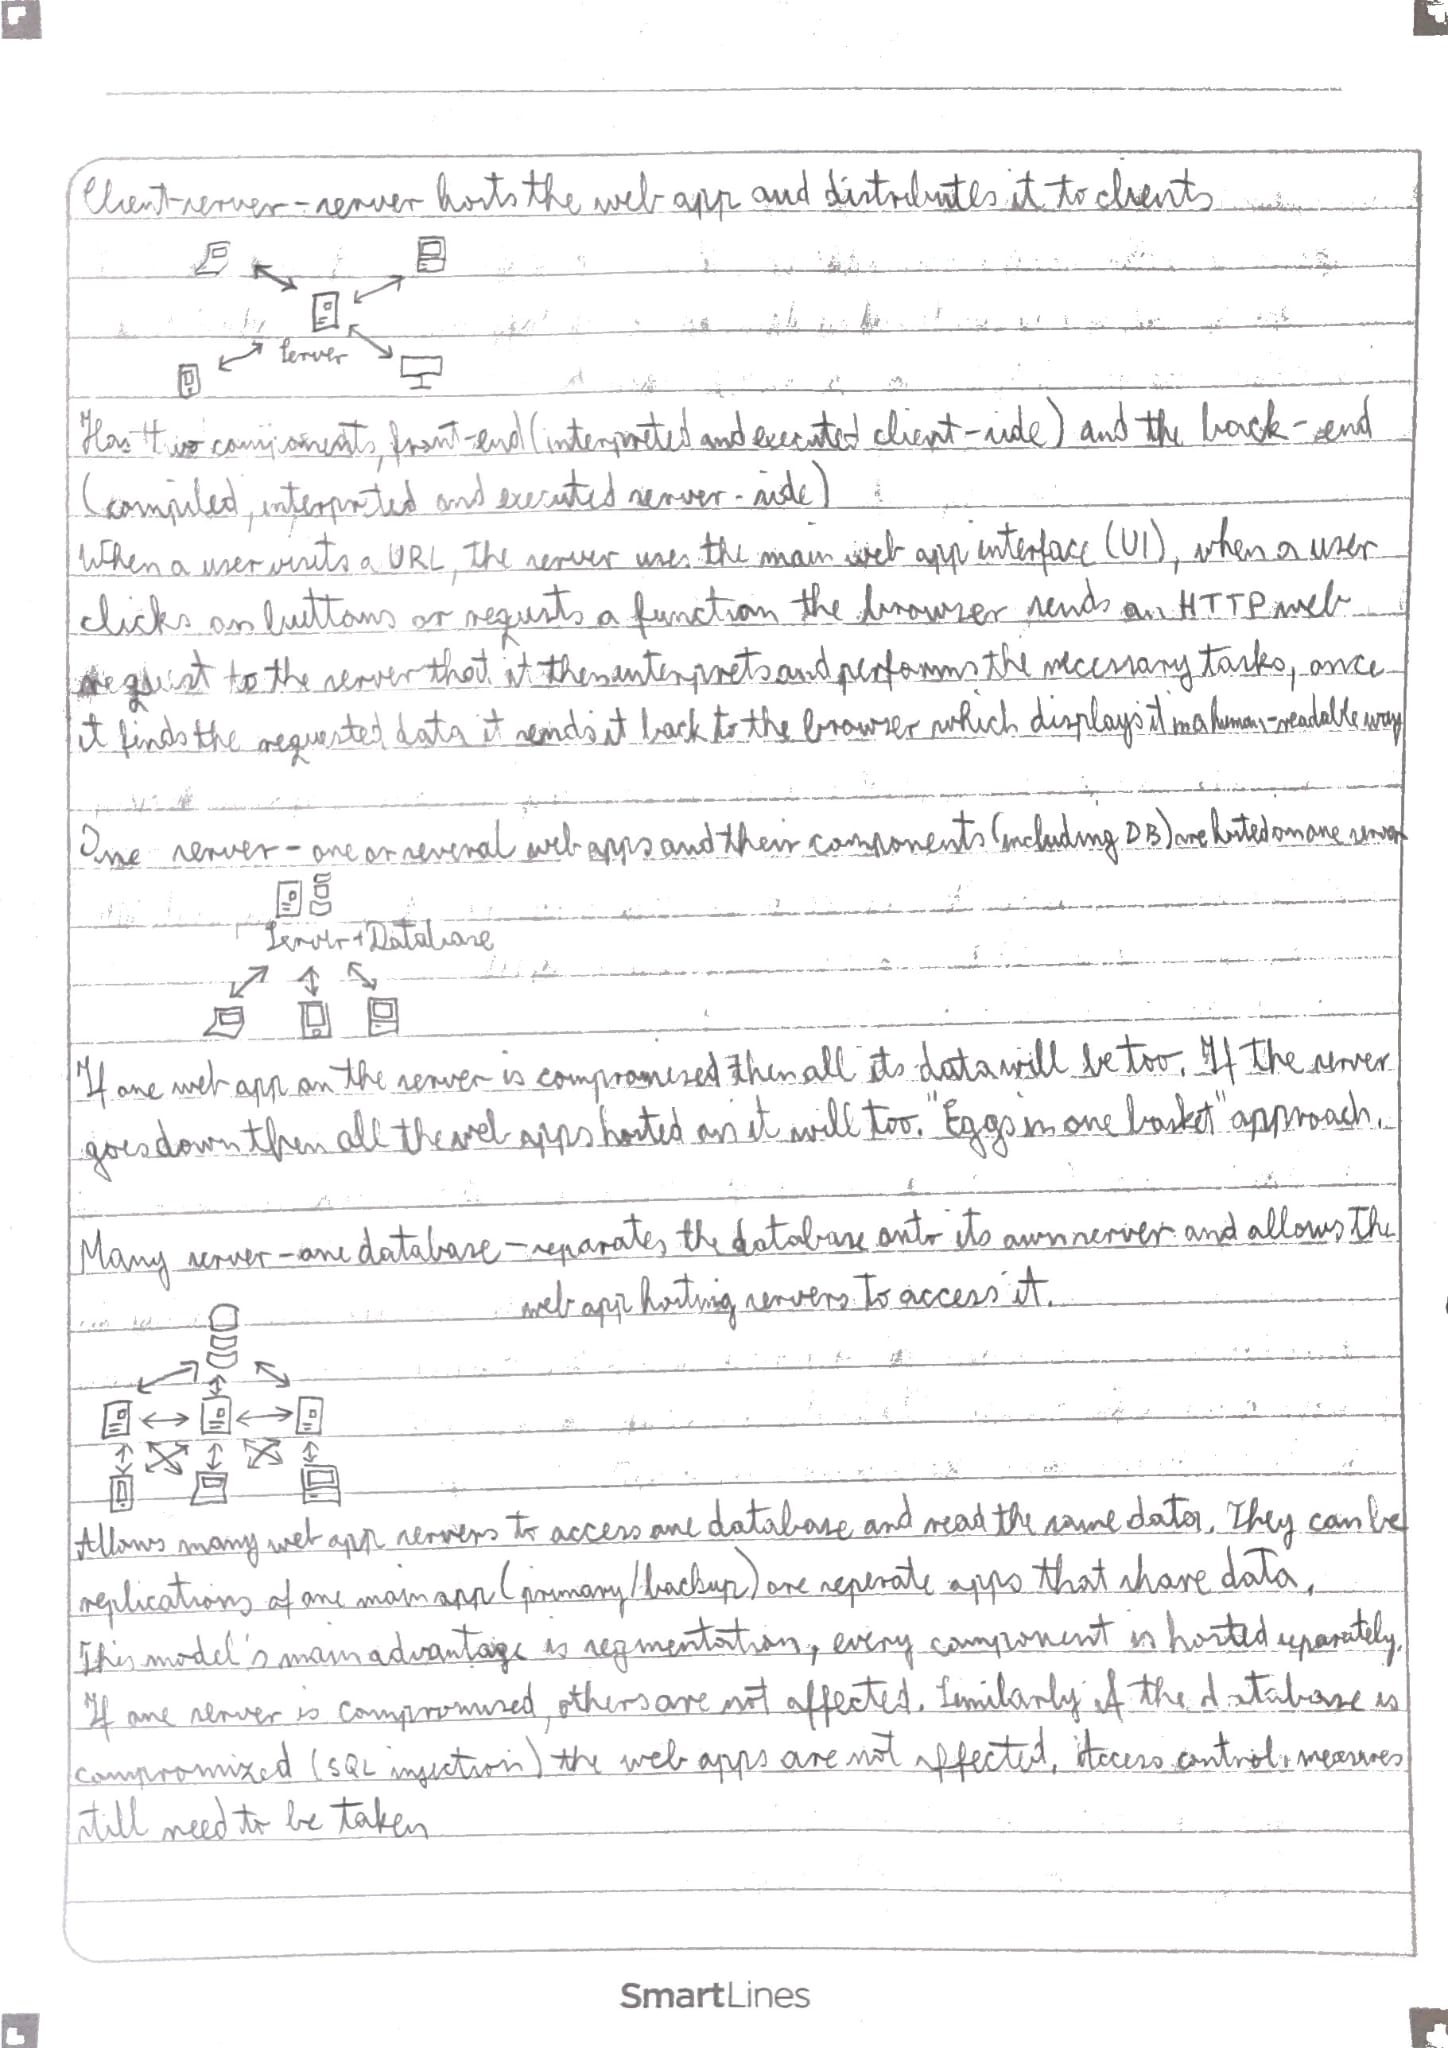 Client-server - server hosts the web app and distributes it to clients
Server
Has two components, front-end (interpreted and executed client-side) and the back-end
(compiled, interpreted and executed server-side)
When a user visits a URL, the server uses the main web app interface (UI), when a user
clicks on buttons or requests a function the browser sends an HTTP web
request to the server that it then interprets and performs the necessary tasks, once
it finds the requested data it sends it back to the browser which displays it in a human-readable way
One server - one or several web apps and their components (including DB) are hosted on one server
Server + Database
If one web app on the server is compromised then all its data will be too. If the server
goes down then all the web apps hosted on it will too. "Eggs in one basket" approach.
Many server - one database - separates the database onto its own server and allows the
web app hosting servers to access it.
Allows many web app servers to access one database and read the same data. They can be
replications of one main app (primary/backup) are seperate apps that share data.
This model's main advantage is segmentation, every component is hosted separately.
If one server is compromised, others are not affected. Similarly if the database is
compromized (SQL injection) the web apps are not affected. Access control measures
still need to be taken
SmartLines